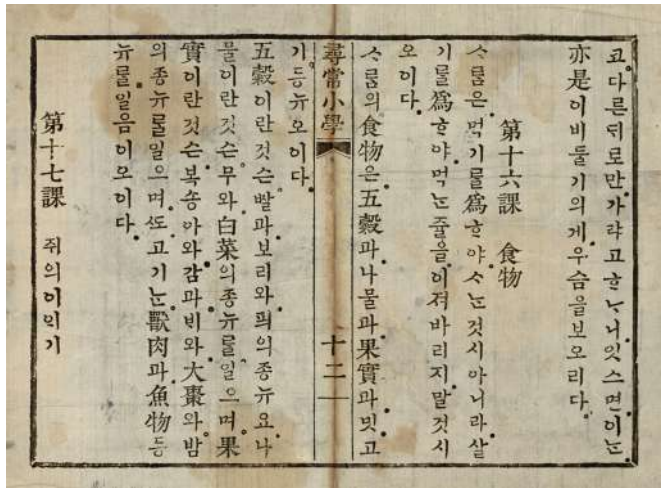 고. 다른ᄃᆡ로만. 가랴고ᄒᆞᄂᆞ니잇스면이ᄂᆞᆫ
亦是이비둘기의게. 우슴을보오리다.
第十六課 食物
ᄉᆞᄅᆞᆷ은. 먹기ᄅᆞᆯ爲ᄒᆞ야. ᄉᆞᄂᆞᆫ것시아니라. 살
기ᄅᆞᆯ爲ᄒᆞ야. 먹ᄂᆞᆫ쥴을이져바리지. 말것시
오이다.
ᄉᆞᄅᆞᆷ의食物은. 五穀과. 나물과. 果實과. 밋고
尋常小學 十二
기등뉴오이다.
五穀이란것슨. ᄡᅡᆯ과. 보리와. 픠의종뉴요. 나
물이란것슨. 무와. 白菜의종뉴ᄅᆞᆯ일으며. 果
實이란것슨. 복송아와. 감과. ᄇᆡ와. 大棗와. 밤
의종뉴ᄅᆞᆯ일으며. ᄯᅩ고기ᄂᆞᆫ. 獸肉과. 魚物등
뉴ᄅᆞᆯ일음이오이다.
第十七課 쥐의이ᄋᆡ기